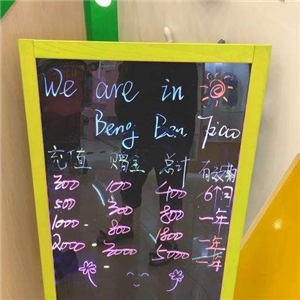 We are in
Beng Ban Jiao
充值 赠送 总计 有效期
300 100 400 6个月
500 300 800 一年
1000 800 1800 一年
2000 3000 5000 一年